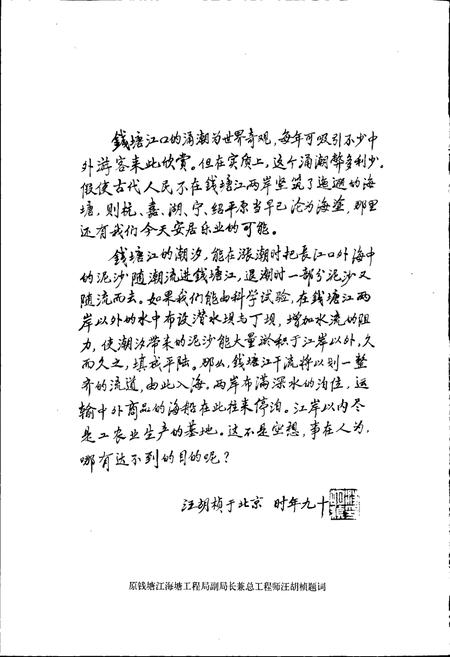 钱塘江口的涌潮为世界奇观，每年可吸引不少中
外游客来此欣赏。但在实质上，这个涌潮弊多利少。
假使古代人民不在钱塘江两岸坚筑了迤逦的海
塘，则杭、嘉、湖、宁、绍平原当早已沦为海涂，那里
还有我们今天安居乐业的可能。
钱塘江的潮汐，能在涨潮时把长江口外海中
的泥沙随潮流进钱塘江，退潮时一部分泥沙又
随流而去。如果我们能由科学试验，在钱塘江两
岸以外的水中布设潜水坝与丁坝，增加水流的阻
力，使潮汐带来的泥沙能大量淤积于江岸以外，久
而久之，填成平陆。那么，钱塘江干流将以划一整
齐的流道，由此入海。两岸布满深水的泊位，运
输中外商品的海船在此往来停泊。江岸以内尽
是工农业生产的基地。这不是空想，事在人为，
哪有达不到的目的呢？
汪胡桢于北京 时年九十
原钱塘江海塘工程局副局长兼总工程师汪胡桢题词